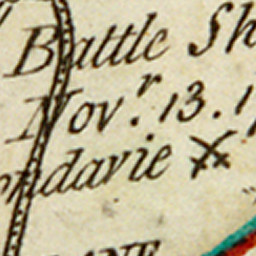 Battle Sh
Nov.r 13. 1
endavie